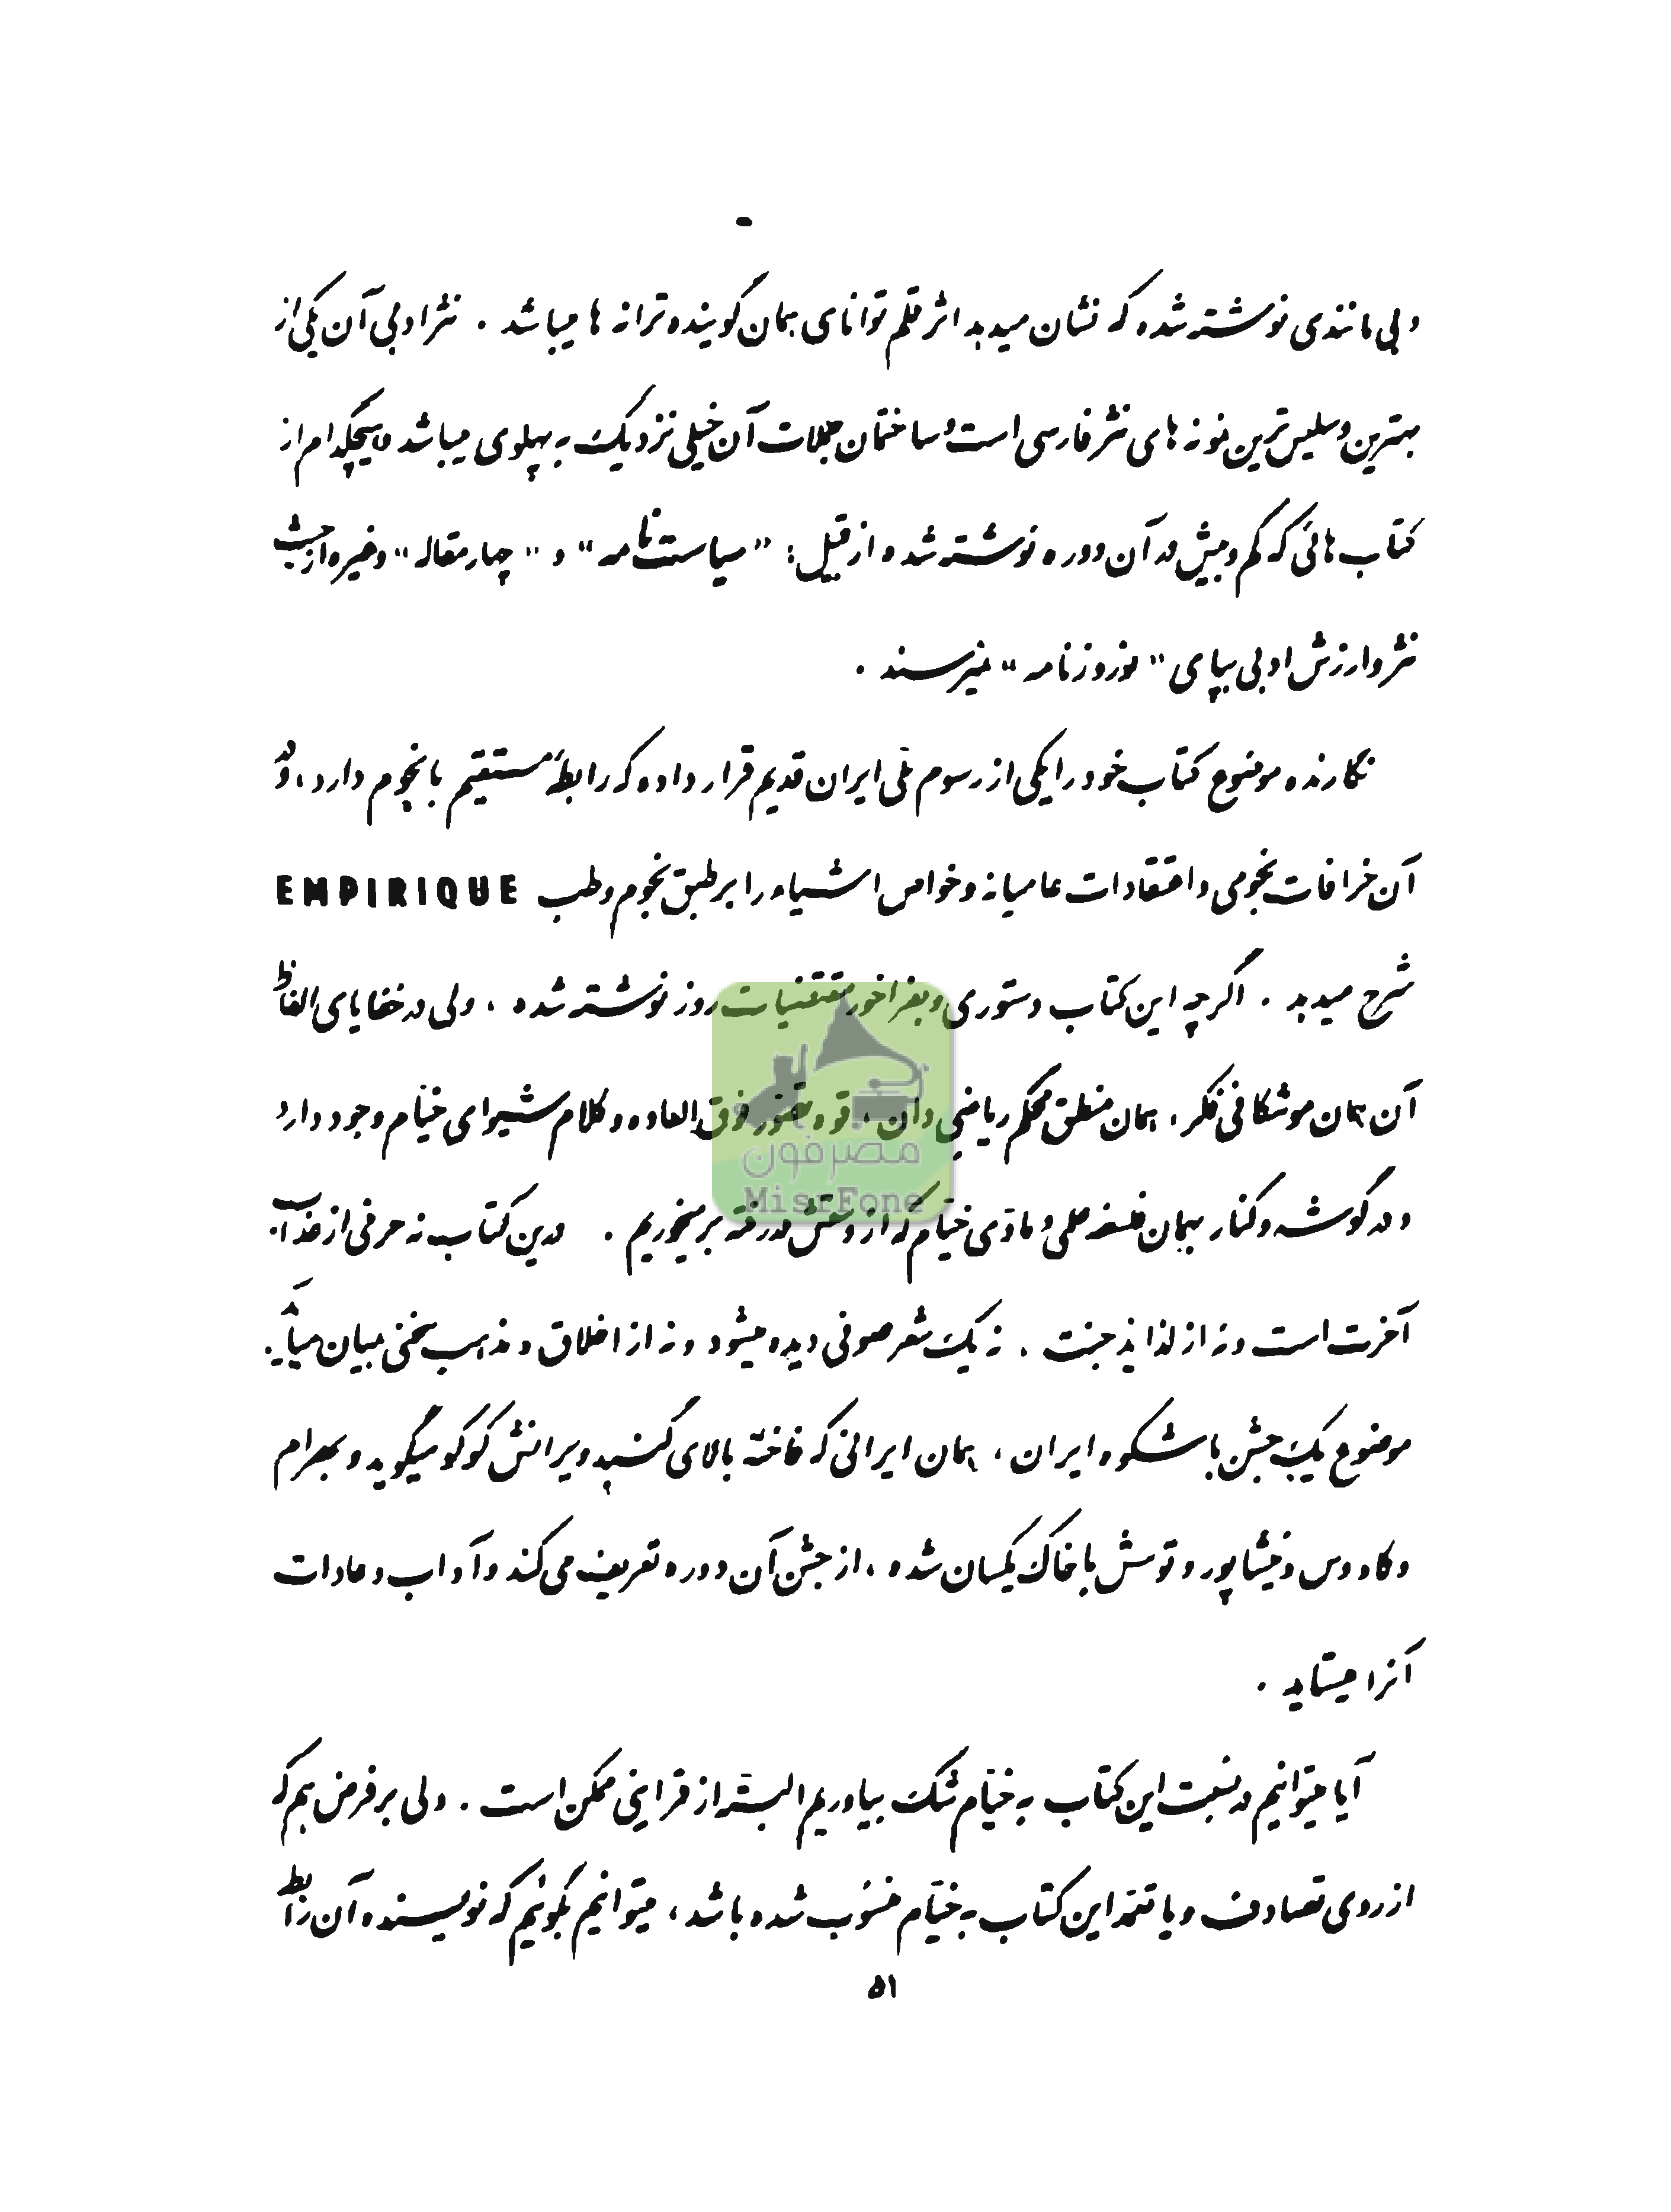 و بی مانندی نوشته شده که نشان میدهد اثر قلم توانای همان گوینده ترانه ها میباشد . نثر ادبی آن یکی از
بهترین و سلیس ترین نمونه های نثر فارسی است و ساختمان جملات آن خیلی نزدیک به پهلوی میباشد و هیچکدام از
کتاب هائی که کم و بیش در آن دوره نوشته شده از قبیل : « سیاست نامه » و « چهار مقاله » و غیره از حیث
نثر و ارزش ادبی بپای « نوروزنامه » نمیرسند .
نگارنده موضوع کتاب خود را یکی از رسوم ملی ایران قدیم قرار داده که رابطهٔ مستقیم با نجوم دارد ، و در
آن خرافات نجومی و اعتقادات عامیانه و خواص اشیاء را بر طبق نجوم و طب EMPIRIQUE
شرح میدهد . اگر چه این کتاب دستوری و بفراخور مقتضیات روز نوشته شده ، ولی در خفایای الفاظ
آن همان موشکافی فکر ، همان منطق محکم ریاضی دان ، قوه تصور فوق العاده و کلام شیوای خیام وجود دارد
و در گوشه و کنار بهمان فلسفه علمی و مادی خیام که از دستش در رفته بر میخوریم . در این کتاب نه حرفی از عذاب
آخرت است و نه از لذایذ جنت ، نه یک شعر صوفی دیده میشود و نه از اخلاق و مذهب سخنی بمیان میآید .
موضوع یک جشن با شکوه ایران ، همان ایرانی که فاخته بالای گنبد ویرانش کوکو میگوید و بهرام
و کاووس و نیشاپور و توسش با خاک یکسان شده ، از جشن آن دوره تعریف می کند و آداب و عادات
آنرا میستاید .
آیا میتوانیم در نسبت این کتاب به خیام شک بیاوریم البته از قراینی ممکن است . ولی بر فرض هم که
از روی تصادف و یا تعمد این کتاب به خیام منسوب شده باشد ، میتوانیم بگوئیم که نویسنده آن رابطه
۵۱
مصرفون
MisrFone